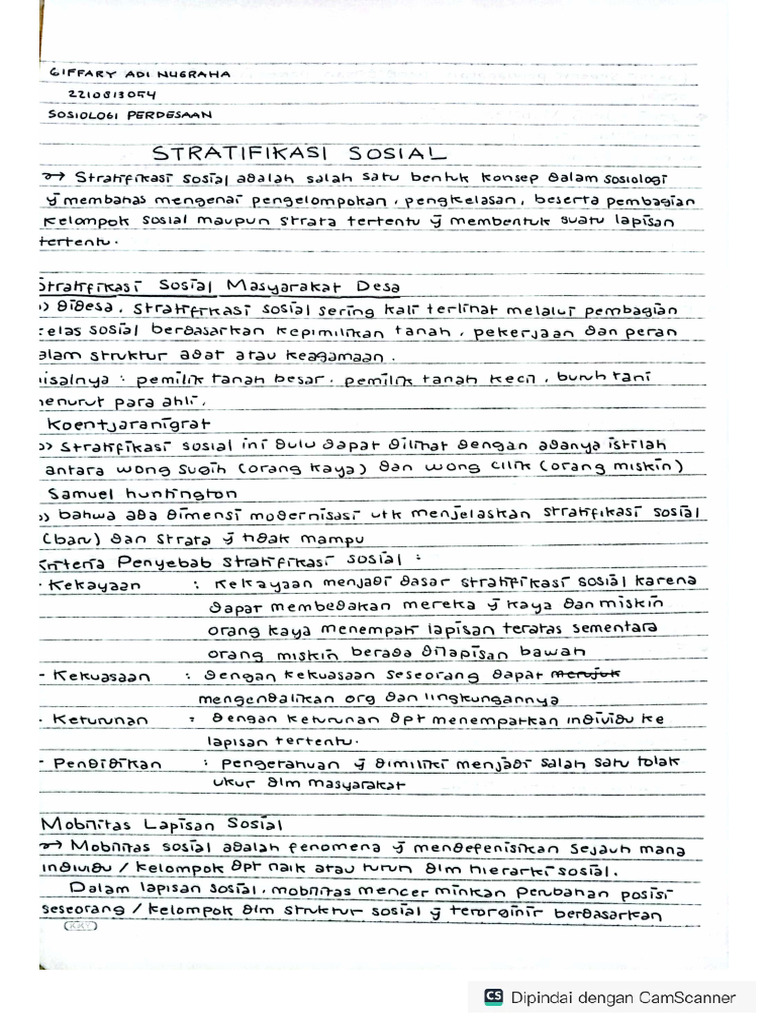 GIFFARY ADI NUGRAHA
2210813054
SOSIOLOGI PERDESAAN
STRATIFIKASI SOSIAL
→ Stratifikasi sosial adalah salah satu bentuk konsep dalam sosiologi
yg membahas mengenai pengelompokan, pengkelasan, beserta pembagian
kelompok sosial maupun strata tertentu yg membentuk suatu lapisan
tertentu.
Stratifikasi Sosial Masyarakat Desa
>> didesa, stratifikasi sosial sering kali terlihat melalui pembagian
kelas sosial berdasarkan kepimilikan tanah, pekerjaan dan peran
dalam struktur adat atau keagamaan.
misalnya : pemilik tanah besar, pemilik tanah kecil, buruh tani
menurut para ahli.
Koentjaranigrat
>> stratifikasi sosial ini dulu dapat dilihat dengan adanya istilah
antara wong sugih (orang kaya) dan wong cilik (orang miskin)
Samuel huntington
>> bahwa ada dimensi modernisasi utk menjelaskan stratifikasi sosial
(baru) dan strata yg tidak mampu
Kriteria Penyebab stratifikasi sosial :
- Kekayaan : Kekayaan menjadi dasar stratifikasi sosial karena
dapat membedakan mereka yg kaya dan miskin
orang kaya menempati lapisan teratas sementara
orang miskin berada dilapisan bawah
- Kekuasaan : dengan kekuasaan seseorang dapat merujuk
mengendalikan org dan lingkungannya
- Keturunan : dengan keturunan dpt menempatkan individu ke
lapisan tertentu.
- Pendidikan : pengetahuan yg dimiliki menjadi salah satu tolak
ukur dlm masyarakat
Mobilitas Lapisan Sosial
→ Mobilitas sosial adalah fenomena yg mendefenisikan sejauh mana
individu / kelompok dpt naik atau turun dlm hierarki sosial.
Dalam lapisan sosial, mobilitas mencerminkan perubahan posisi
seseorang / kelompok dlm struktur sosial yg berdasarkan
CS Dipindai dengan CamScanner